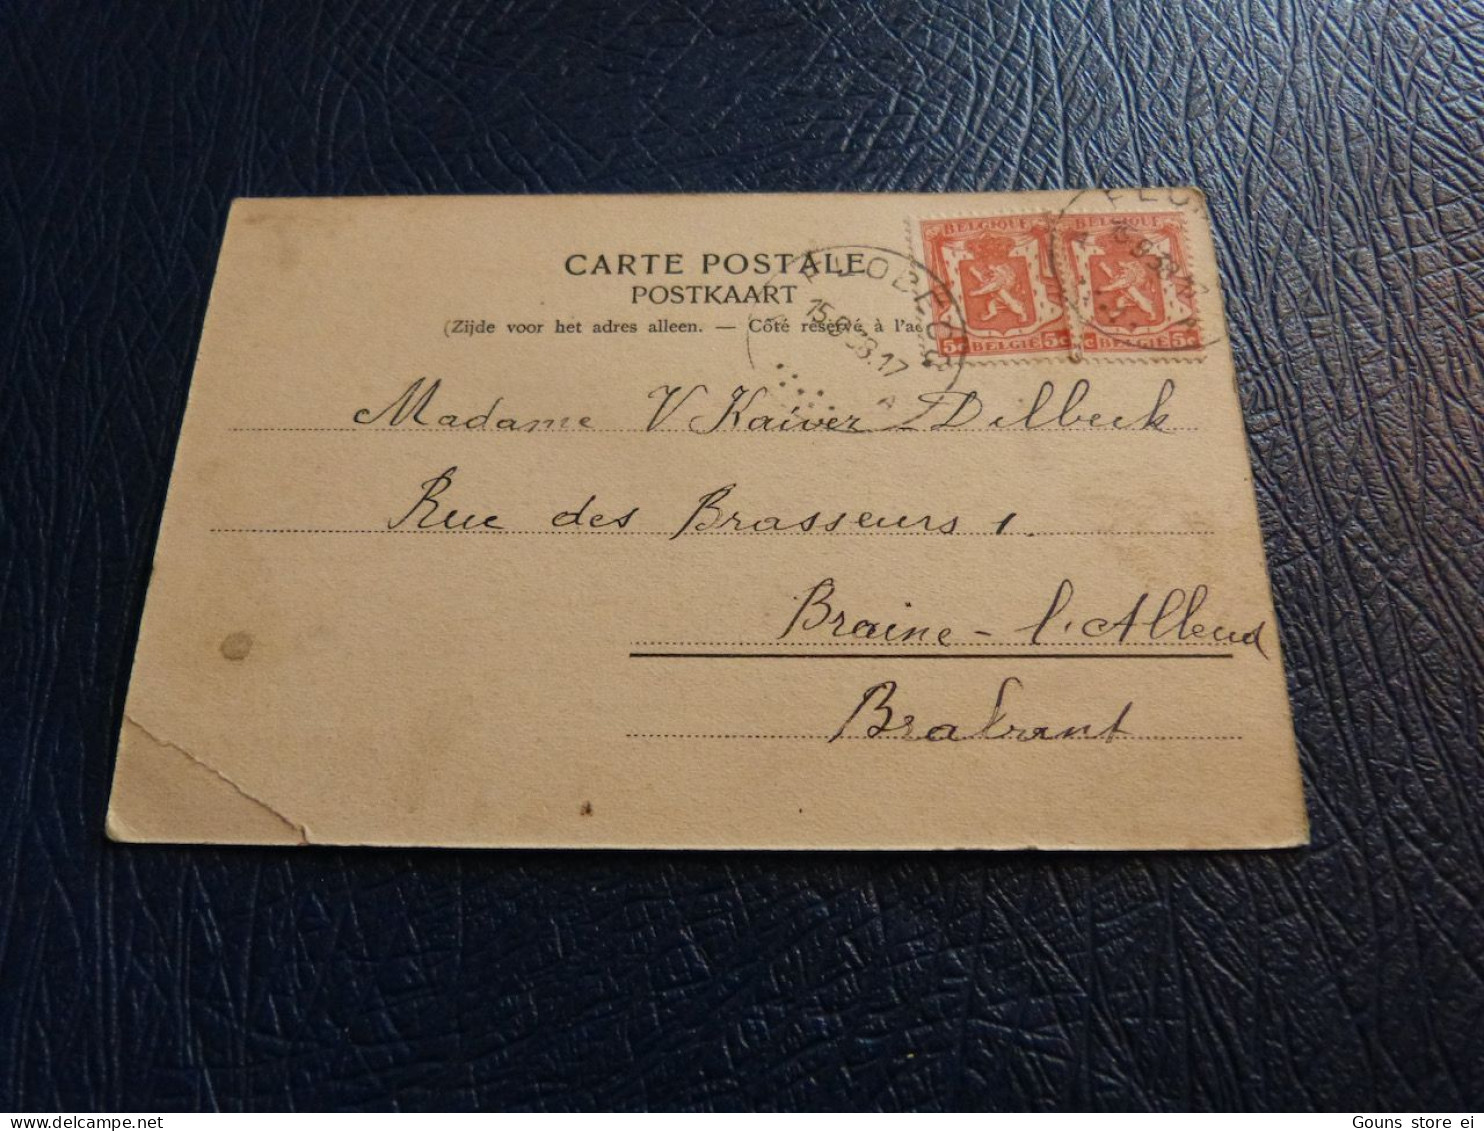 CARTE POSTALE
POSTKAART
(Zijde voor het adres alleen. — Côté réservé à l'a
BELGIQUE
5c BELGIE 5c
BELGIQUE
c BELGIE 5c
15.9.38.17
Madame V Kaiver Dilbeck
Rue des Brasseurs 1.
Braine-l'Alleud
Brabant
Gouns store ei